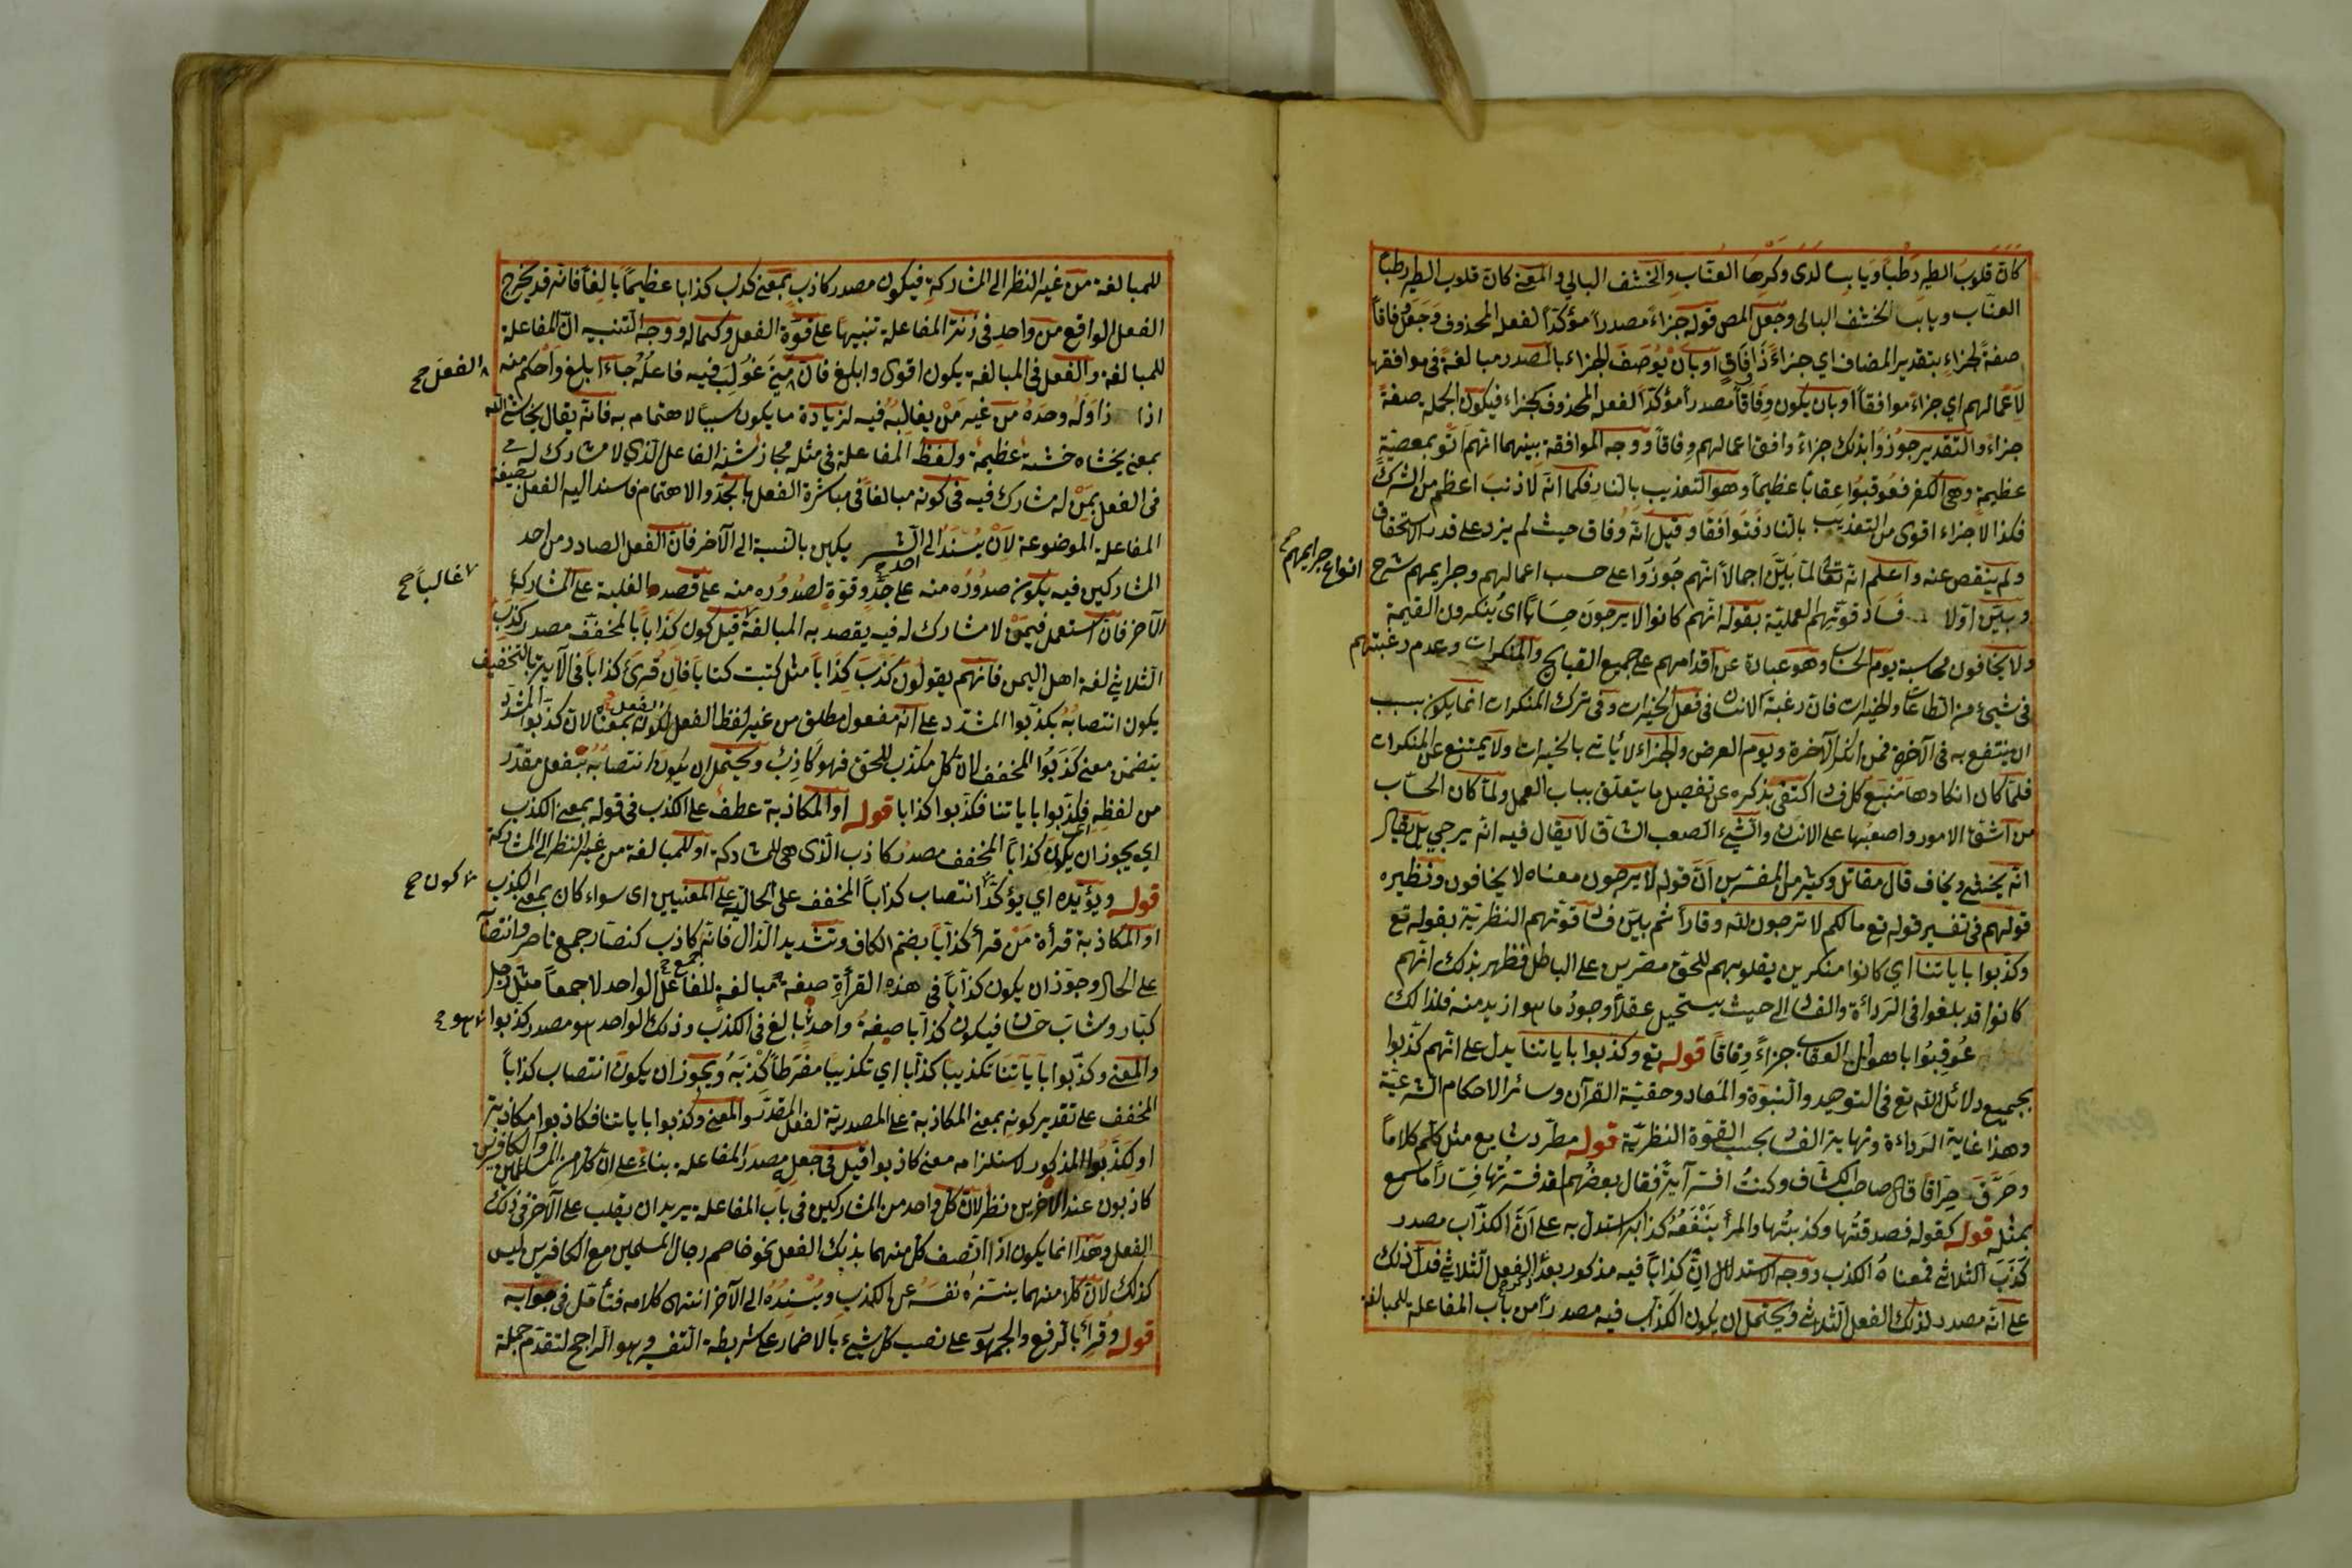 كان قلوب الطير رطبا ويابسا لدى وكرها العناب والخشف البالي والمعنى كان قلوب الطير رطبا
العناب ويابسا الخشف البالى وجعل المص قوله جزاء مصدرا مؤكدا لفعله المحذوف وجعل وفاقا
صفة لجزاء بتقدير المضاف اي جزاء ذا وفاق او بان يوصف الجزاء بالمصدر مبالغة في موافقتها
لاعمالهم اي جزاء موافقا او بان يكون وفاقا مصدرا مؤكدا لفعله المحذوف كجزاء فيكون الجملة صفة
جزاء والتقدير جوزوا بذلك جزاء وافق اعمالهم وفاقا ووجه الموافقة بينهما انهم اتو بمعصية
عظيمة وهي الكفر فعوقبوا عقابا عظيما وهو التعذيب بالنار فكما انه لا ذنب اعظم من الشرك
فكذا لا جزاء اقوى من التعذيب بالنار فتوافقا وقيل انه وفاق حيث لم يزد على قدر الاستحقاق
ولم ينقص عنه واعلم انه تعالى لما بين اجمالا انهم جوزوا على حسب اعمالهم وجرايمهم شرح
انواع جرايمهم صح
وبين اولا فساد قوتهم العملية بقوله انهم كانوا لا يرجون حسابا اى ينكرون القيمة
ولا يخافون محاسبة يوم الحساب وهو عبارة عن اقدامهم على جميع القبايح والمنكرات وعدم رغبتهم
في شيء من الطاعات والخيرات فان رغبة الانسان في فعل الخيرات وفي ترك المنكرات انما يكون بسبب
ان ينتفع به في الآخرة فمن انكر الآخرة ويوم العرض والجزاء لا يأتي بالخيرات ولا يمتنع عن المنكرات
فلما كان انكارها منبع كل فساد اكتفى بذكره عن تفصيل ما يتعلق بباب العمل ولما كان الحساب
من اشق الامور واصعبها على الانسان والشيء الصعب الشاق لا يقال فيه انه يرجي بل يقال
انه يخشى ويخاف قال مقاتل وكثير من المفسرين ان قوله لا يرجون معناه لا يخافون ونظيره
قولهم في تفسير قوله تع مالكم لا ترجون لله وقارا ثم بين فساد قوتهم النظرية بقوله تع
وكذبوا باياتنا اي كانوا منكرين بقلوبهم للحق مصرين على الباطل فظهر بذلك انهم
كانوا قد بلغوا في الرداءة والفساد الى حيث يستحيل عقلا وجود ما هو ازيد منه فلذالك
عوقبوا باهول العقاب جزاء وفاقا قوله تع وكذبوا باياتنا يدل على انهم كذبوا
بجميع دلائل الله تع في التوحيد والنبوة والمعاد وحقية القرآن وسائر الاحكام الشرعية
وهذا غاية الرداءة ونهاية الفساد بحسب القوة النظرية قوله مطرد شايع مثل كلم كلاما
وحرق حراقا قال صاحب الكشاف وكنت افسر آية فقال بعضهم لقد فسرتها فسارا ما سمع
بمثله قوله كقوله فصدقتها وكذبتها والمرأ ينفعه كذابه استدل به على ان الكذاب مصدر
كذب الثلاثي فمعناه الكذب ووجه الاستدلال ان كذابا فيه مذكور بعد الفعل الثلاثي فدل ذلك
على انه مصدر لذلك الفعل الثلاثي ويحتمل ان يكون الكذاب فيه مصدرا من باب المفاعلة للمبالغة
للمبالغة من غير النظر الى المشاركة فيكون مصدر كاذب بمعنى كذب كذابا عظيما بالغا فانه قد يخرج
الفعل الواقع من واحد في زنة المفاعلة تنبيها على قوة الفعل وكماله ووجه التنبيه ان المفاعلة
للمبالغة والفعل في المبالغة يكون اقوى وابلغ فان متى غولب فيه فاعله جاء ابلغ واحكم منه
الفعل صح
اذا زاوله وحده من غير من يغالبه فيه لزيادة ما يكون سببا لاهتمامه به فانه يقال يخاشي الله
بمعنى يخشاه خشية عظيمة ولفظ المفاعلة في مثله مجاز شبه الفاعل الذي لا مشارك له
في الفعل بمن له مشارك فيه في كونه مبالغا في مباشرة الفعل بالجد والاهتمام فاسند اليه الفعل بصيغة
المفاعلة الموضوعة لان يسند الى احد يكون بالنسبة الى الآخر فان الفعل الصادر من احد
المشاركين فيه يكون صدوره منه على جد وقوة لصدوره منه على قصد الغلبة على المشارك
غالبا صح
الآخر فان استعمل فيمن لا مشارك له فيه يقصد به المبالغة قيل كون كذابا بالمخفف مصدر كذب
الثلاثي لغة اهل اليمن فانهم يقولون كذب كذابا مثل كتبت كتابا فان قرئ كذابا في الآية بالتخفيف
يكون انتصابه بكذبوا المشدد على انه مفعول مطلق من غير لفظ الفعل لكونه بمعناه لان كذبوا المشدد
يتضمن معنى كذبوا المخفف لان كل مكذب للحق فهو كاذب ويحتمل ان يكون انتصابه بفعل مقدر
من لفظه فكذبوا باياتنا فكذبوا كذابا قوله او المكاذبة عطف على الكذب في قوله بمعنى الكذب
اي يجوز ان يكون كذابا المخفف مصدر كاذب الذى هي للمشاركة او للمبالغة من غير النظر الى المشاركة
قوله ويؤيده اي يؤكد انتصاب كذابا المخفف على الحالية على المعنيين اى سواء كان بمعنى الكذب
كون صح
او المكاذبة قرأة من قرأ كذابا بضم الكاف وتشديد الذال فانه كاذب كنصار جمع ناصر وانتصابه
على الحال وجوز ان يكون كذابا في هذه القرأة صيغة مبالغة للفاعل الواحد لا جمعا مثل رجل
كبار وشاب حسان فيكون كذابا صيغة واحد بالغ في الكذب وذلك الواحد هو مصدر كذبوا
هو صح
والمعنى وكذبوا باياتنا تكذيبا كذابا اي تكذيبا مفرطا كذبه ويجوز ان يكون انتصاب كذابا
المخفف على تقدير كونه بمعنى المكاذبة على المصدرية لفعل المقدر والمعنى وكذبوا باياتنا فكاذبوا مكاذبة
او لكذبوا المذكور لاستلزامه معنى كاذبوا قيل في جعله مصدر المفاعلة بناء على ان كلا من المسلمين والكافرين
كاذبون عند الآخرين نظر لان كل واحد من المشاركين في باب المفاعلة يريد ان يغلب على الآخر في ذلك
الفعل وهذا انما يكون اذا اتصف كل منهما بذلك الفعل نحو خاصم رجال المسلمين مع الكافرين ليس
كذلك لان كلا منهما ينزه نفسه عن الكذب ويسنده الى الآخر انتهى كلامه فتأمل في جوابه
قوله وقرأ بالرفع والجمهور على نصب كل شيء بالاضمار على شريطة التفسير وهو الراجح لتقدم جملة